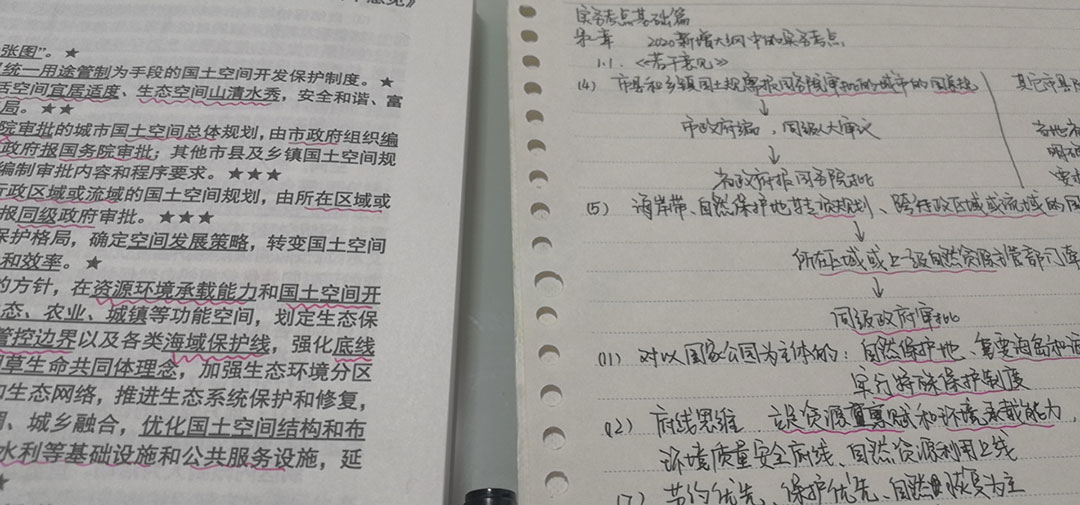 意见》
张图”。★
统一用途管制为手段的国土空间开发保护制度。★
活空间宜居适度、生态空间山清水秀，安全和谐、富
局。★★
院审批的城市国土空间总体规划，由市政府组织编
政府报国务院审批；其他市县及乡镇国土空间规
编制审批内容和程序要求。★★★
行政区域或流域的国土空间规划，由所在区域或
报同级政府审批。★★★
保护格局，确定空间发展策略，转变国土空间
和效率。★
的方针，在资源环境承载能力和国土空间开
态、农业、城镇等功能空间，划定生态保
管控边界以及各类海域保护线，强化底线
草生命共同体理念，加强生态环境分区
和生态网络，推进生态系统保护和修复，
、城乡融合，优化国土空间结构和布
水利等基础设施和公共服务设施，延
★
实务考点基础篇
第一章 2020新增大纲中的实务考点
1.1.《若干意见》
(4) 市县和乡镇国土规需报国务院审批的城市的国总规
↓
市政府编，同级人大审议
↓
省政府报国务院批
其它市县
各地
明确
要求
(5) 海岸带、自然保护地等专项规划、跨行政区域或流域的国
↓
所在区域或上一级自然资源主管部门牵
↓
同级政府审批
(11) 对以国家公园为主体的：自然保护地、重要海岛和
实行特殊保护制度
(12) 底线思维 资源禀赋和环境承载能力，
环境质量安全底线、自然资源利用上线
节约优先、保护优先、自然恢复为主